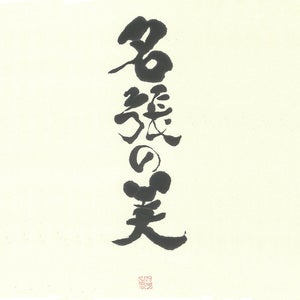 名張の美